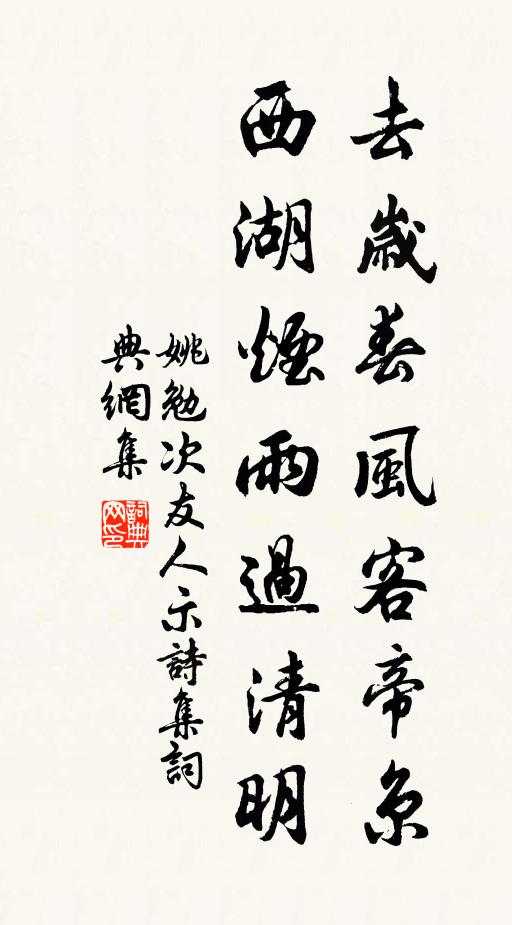 去歲春風客帝京
西湖煙雨過清明
姚勉次友人示詩集詞
典網集
詞典
网印